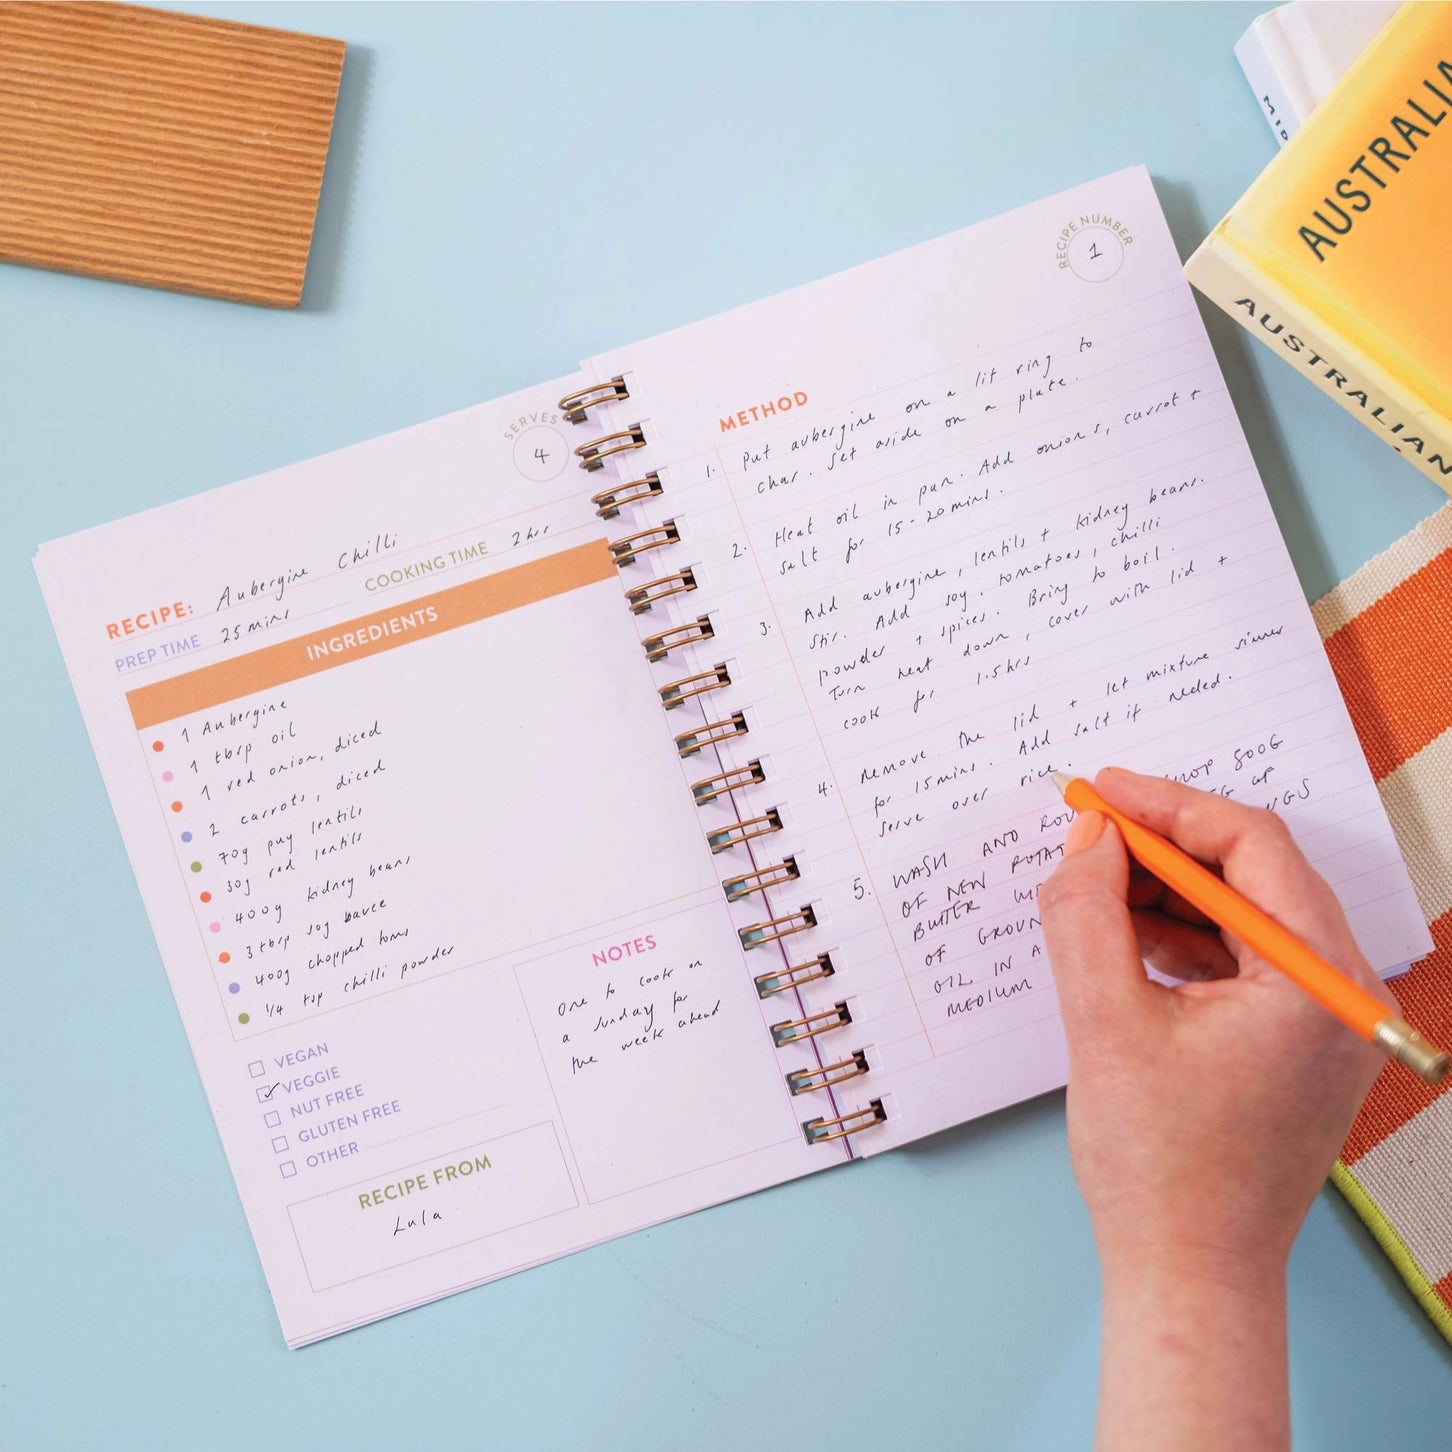 SERVES
4
RECIPE: Aubergine Chilli
PREP TIME 25mins COOKING TIME 2hrs
INGREDIENTS
1 Aubergine
1 tbsp oil
1 red onion, diced
2 carrots, diced
70g puy lentils
30g red lentils
400g kidney beans
3 tbsp soy sauce
400g chopped toms
1/4 tsp chilli powder
VEGAN
✓ VEGGIE
NUT FREE
GLUTEN FREE
OTHER
NOTES
One to cook on
a Sunday for
the week ahead
RECIPE FROM
Lula
RECIPE NUMBER
1
METHOD
1. Put aubergine on a lit ring to
char. Set aside on a plate.
2. Heat oil in pan. Add onions, carrot +
salt for 15-20mins.
3. Add aubergine, lentils + kidney beans.
Stir. Add soy, tomatoes, chilli
powder + spices. Bring to boil.
Turn heat down, cover with lid +
cook for 1.5hrs
4. Remove the lid + let mixture simmer
for 15mins. Add salt if needed.
Serve over rice.
5. WASH AND 800G
OF NEW
BUTTER
OF
OIL IN A
MEDIUM
AUSTRALIA
AUSTRALIAN